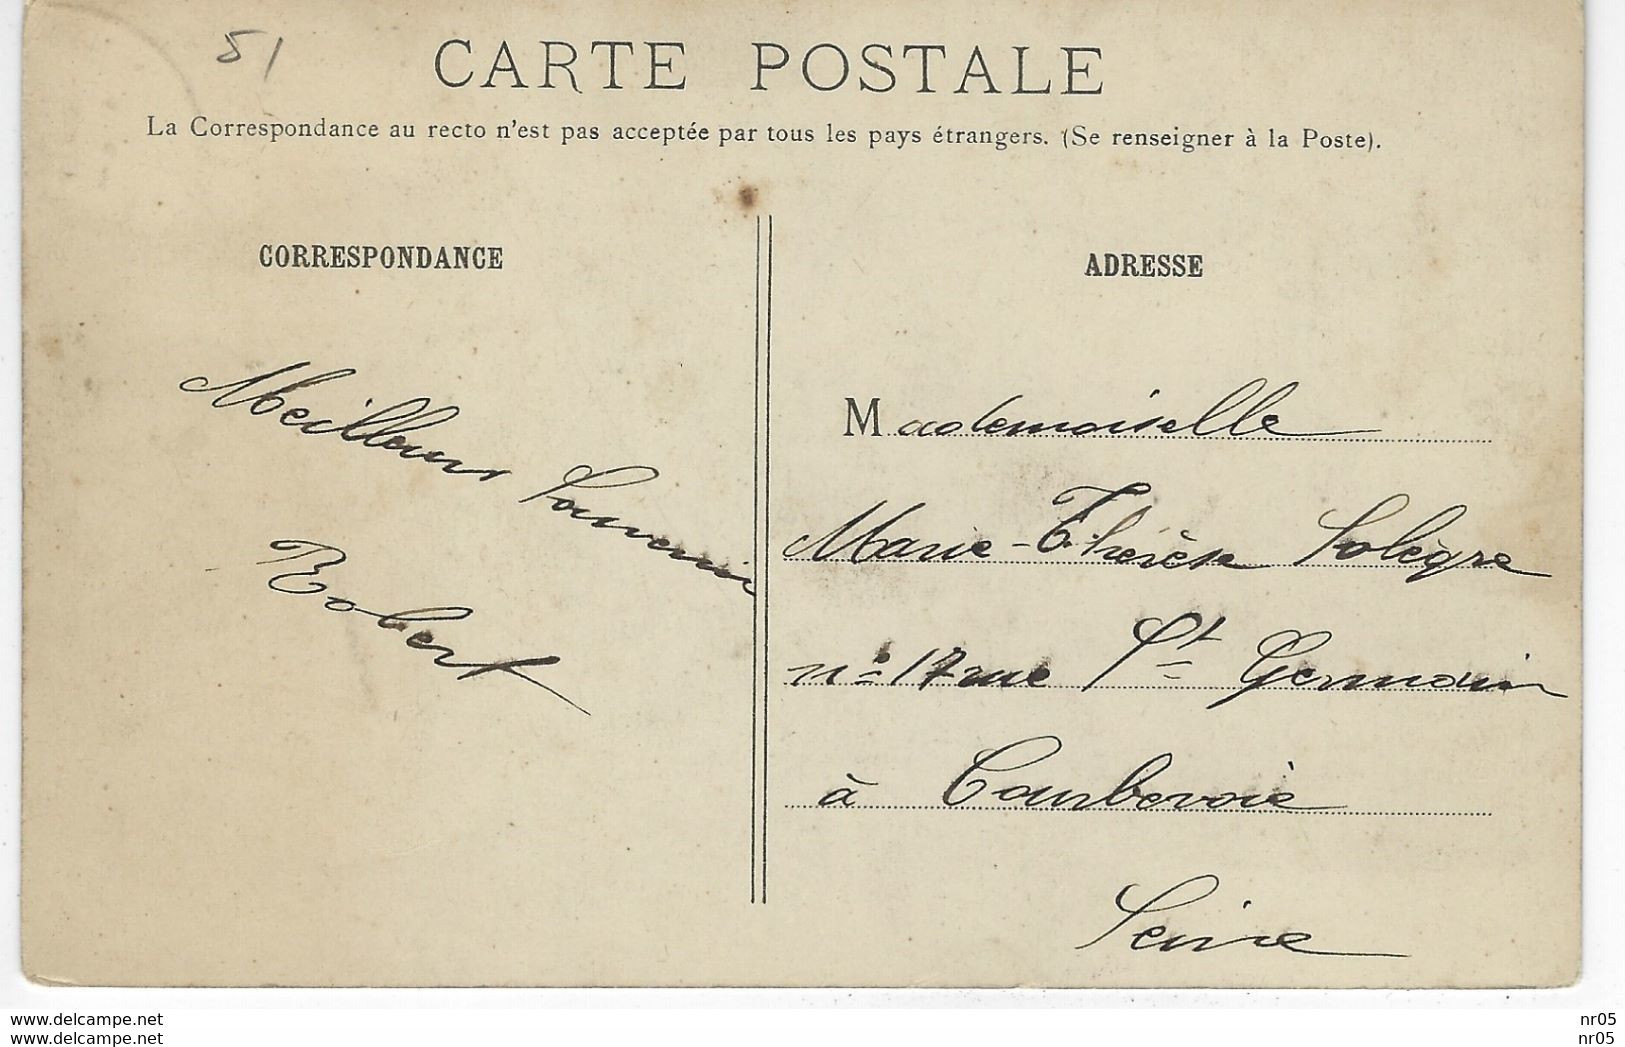 51
CARTE POSTALE
La Correspondance au recto n'est pas acceptée par tous les pays étrangers. (Se renseigner à la Poste).
CORRESPONDANCE
Meilleurs Souvenir
Robert
ADRESSE
Mademoiselle
Marie-Thérèse Solègre
n° 17 rue St Germain
à Courbevoie
Seine
www.delcampe.net
www.delcampe.net
nr05
nr05